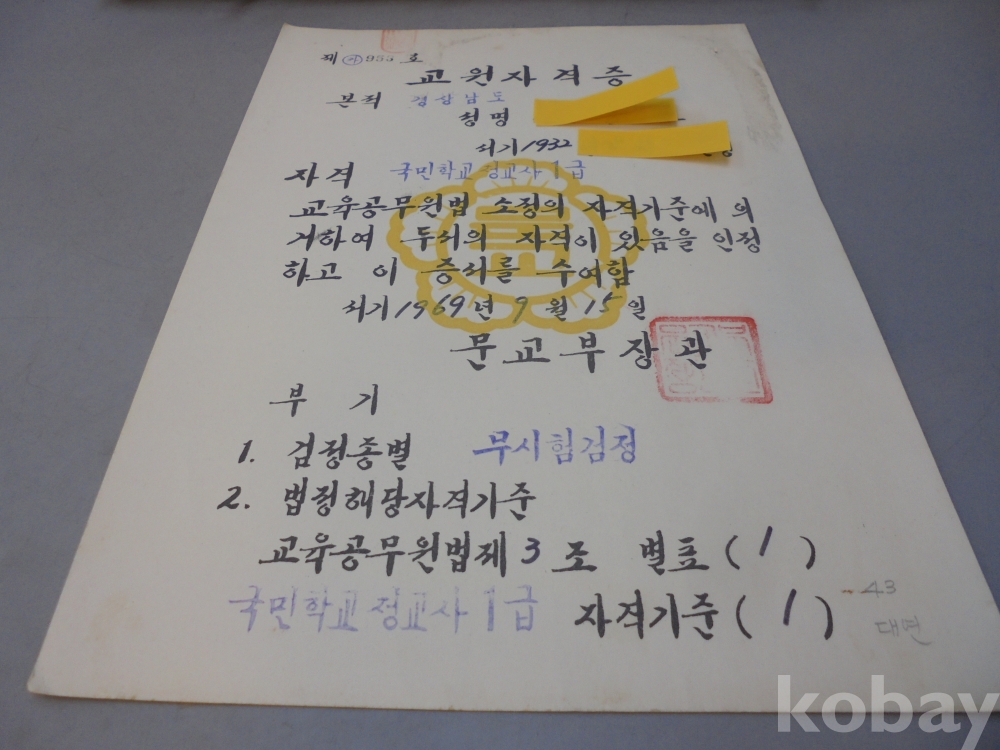 제 953 호
교원자격증
본적 경상남도
성명
서기 1932
자격 국민학교정교사1급
교육공무원법 소정의 자격기준에 의
거하여 두서의 자격이 있음을 인정
하고 이 증서를 수여함
서기 1969년 9월 15일
문교부장관
부 기
1. 검정종별 무시험검정
2. 법정해당자격기준
교육공무원법제 3 조 별표 ( 1 )
국민학교정교사1급 자격기준 ( 1 )
43
대연
kobay